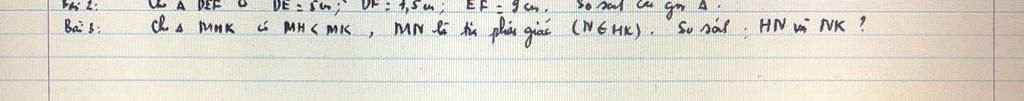 Bài 2: Cho Δ DEF có DE = 5cm; DF = 7,5cm; EF = 9cm. So sánh các góc Δ.
Bài 3: Cho Δ MHK có MH < MK, MN là tia phân giác (N ∈ HK). So sánh: HN và NK?